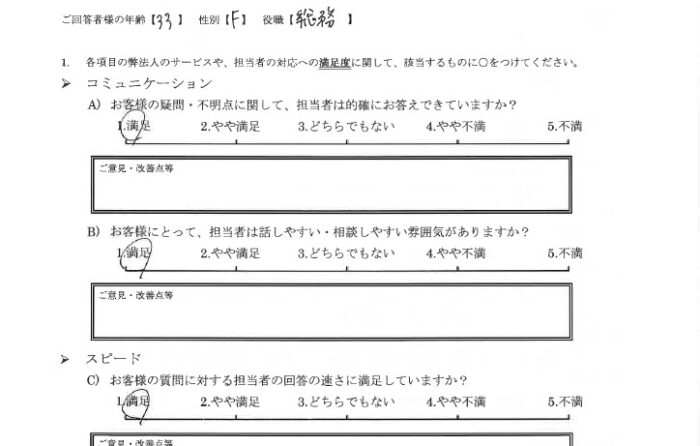 ご回答者様の年齢【33】 性別【F】 役職【総務】
1. 各項目の弊法人のサービスや、担当者の対応への満足度に関して、該当するものに○をつけてください。
➢ コミュニケーション
A) お客様の疑問・不明点に関して、担当者は的確にお答えできていますか？
1.満足 2.やや満足 3.どちらでもない 4.やや不満 5.不満
ご意見・改善点等
B) お客様にとって、担当者は話しやすい・相談しやすい雰囲気がありますか？
1.満足 2.やや満足 3.どちらでもない 4.やや不満 5.不満
ご意見・改善点等
➢ スピード
C) お客様の質問に対する担当者の回答の速さに満足していますか？
1.満足 2.やや満足 3.どちらでもない 4.やや不満 5.不満
ご意見・改善点等